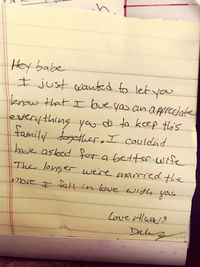 Hey babe
I just wanted to let you
know that I love you an appreciate
everything you do to keep this
family together. I couldnt
have asked for a better wife
The longer were married the
more I fall in love with you
Love Always